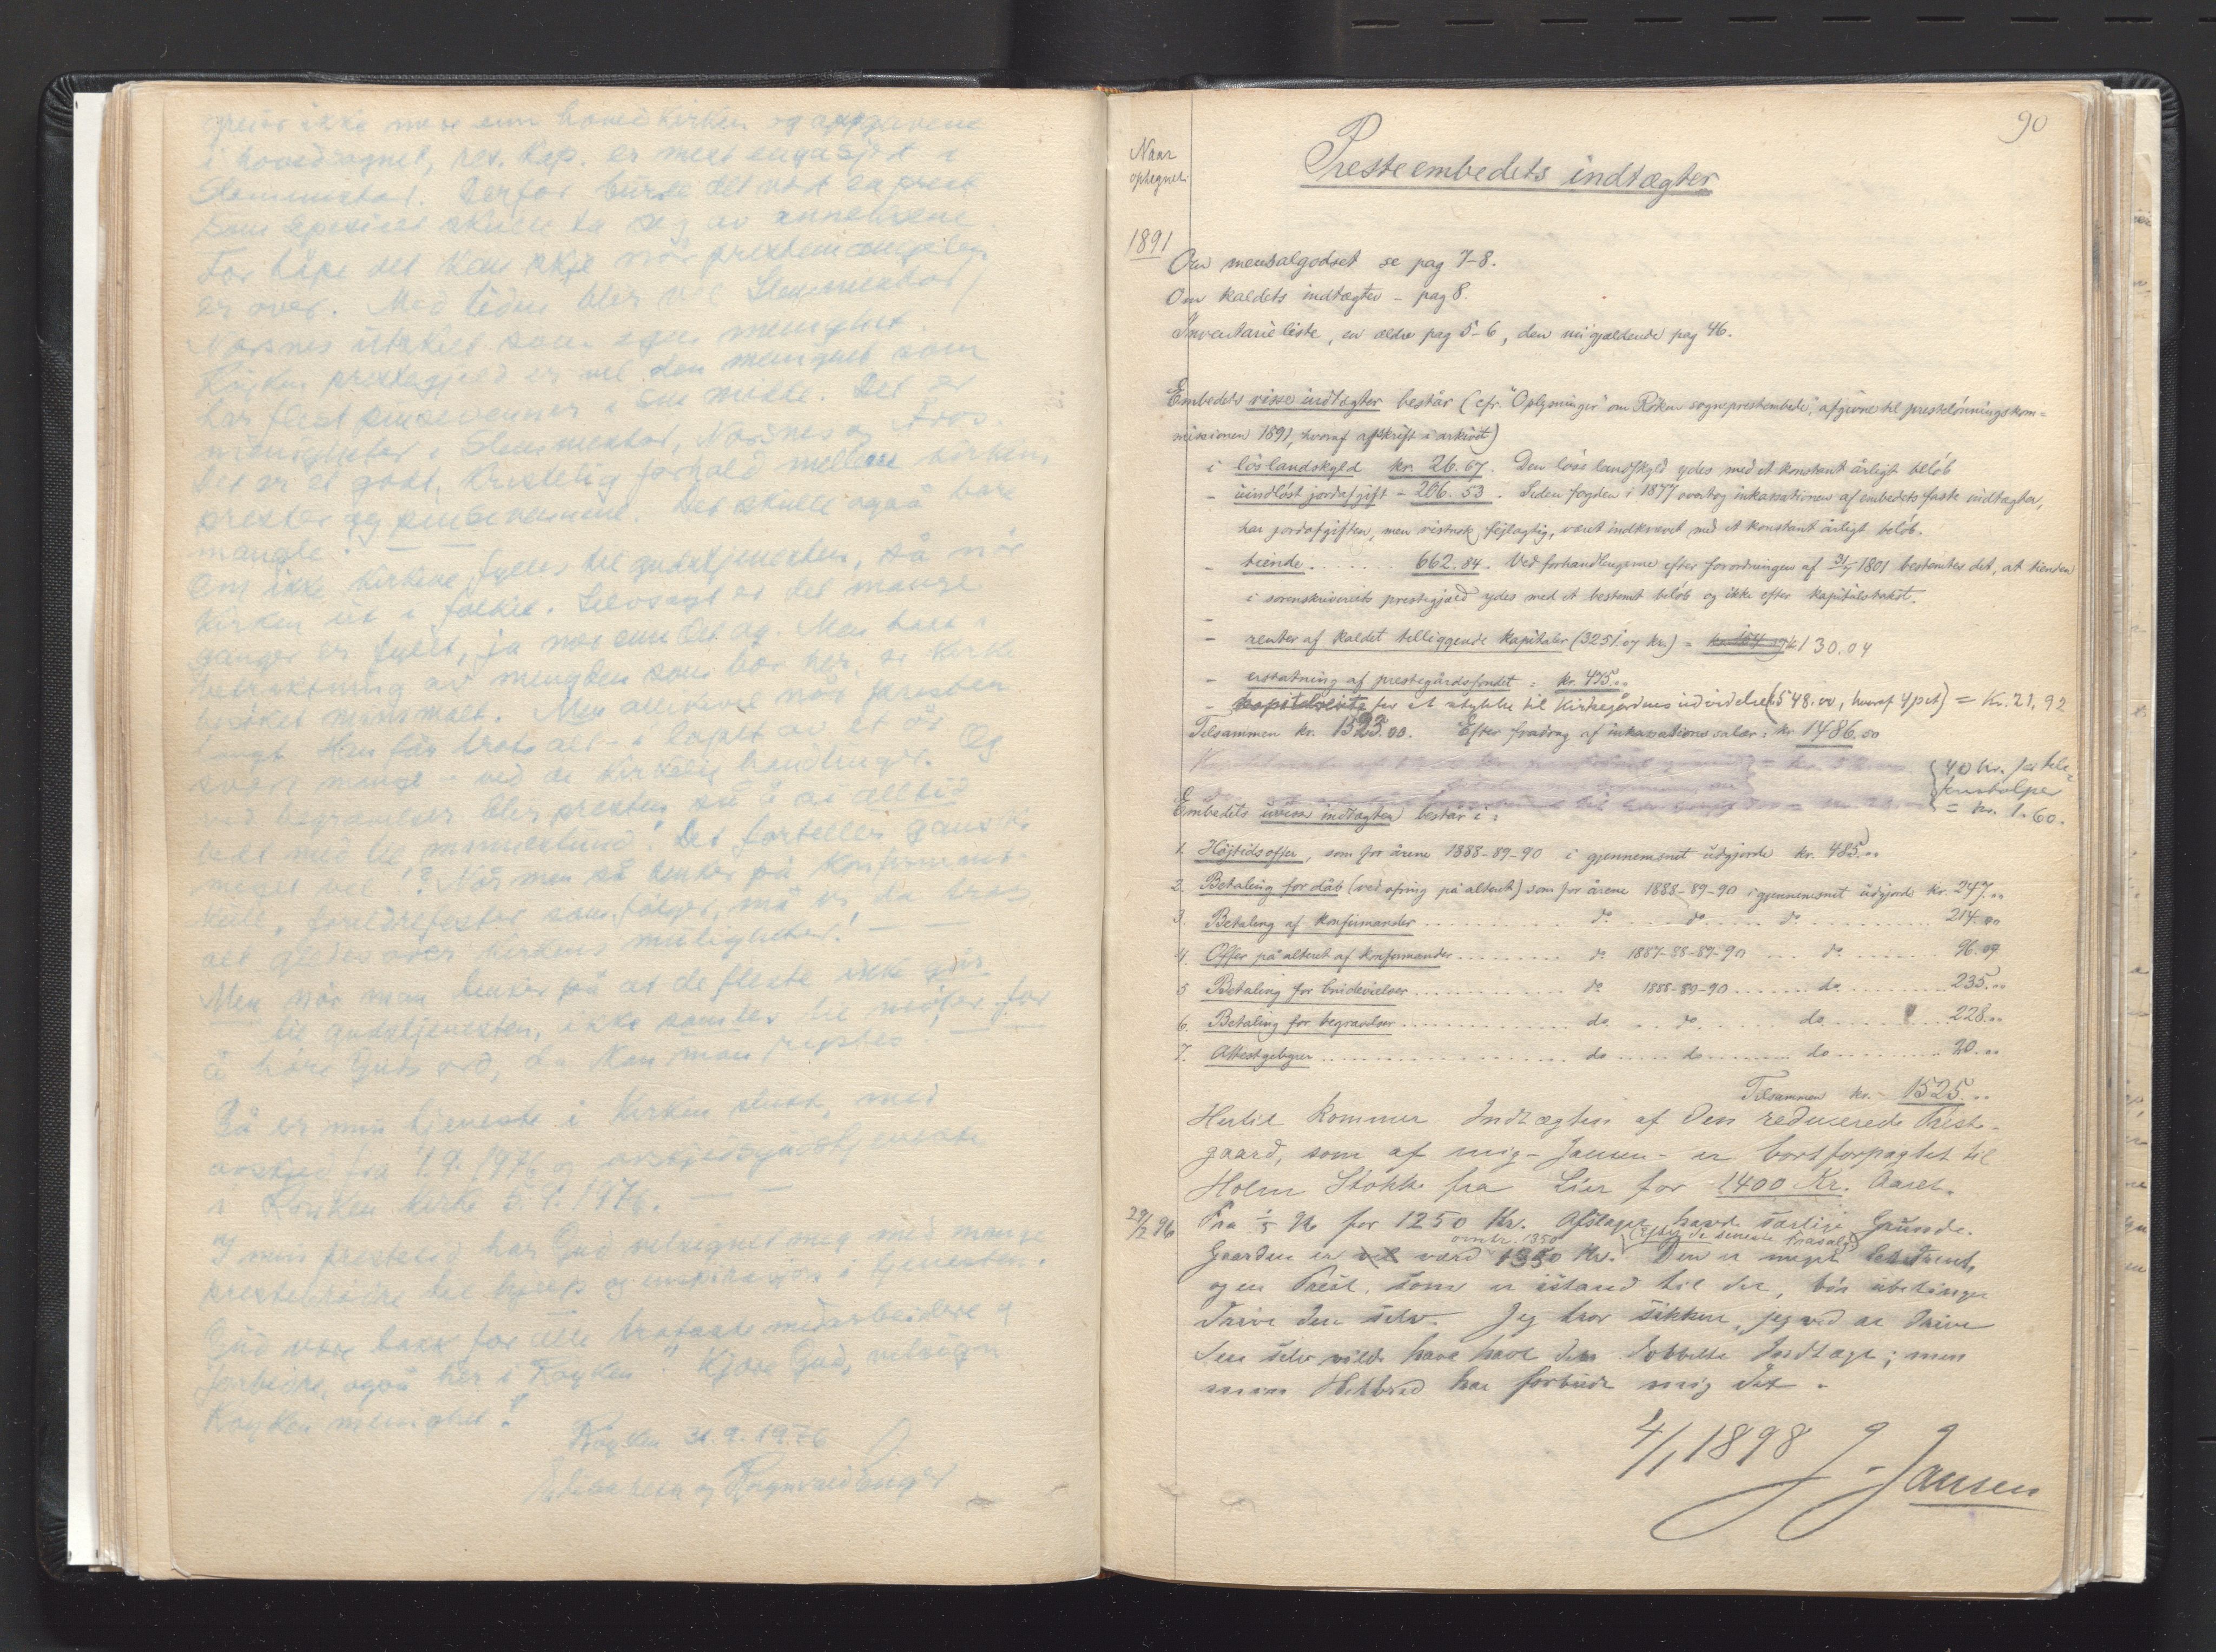 greier ikke mere enn hovedkirken og oppgavene
i hovedsognet, res. kap. er mest engasjert i
Slemmestad. Derfor burde det vært en prest
som spesielt skulle ta seg av annexene
For håpe det kan skje når prestemangelen
er over. Med tiden blir vel Slemmestad/
Nærsnes utskilt som egen menighet.
Røyken prestegjeld er vel den menighet som
har flest pinsevenner i sin midte. Det er
menigheter i Slemmestad, Nærsnes og Åros.
Det er et godt, kristelig forhold mellem kirken,
prester og pinsevennene. Det skulle også bare
mangle.
Om ikke kirkene fylles til gudstjenesten, så når
kirken ut i folket. Selvsagt er det mange
ganger er fyllt, ja mer enn det og. Men tatt i
betraktning av mengden som bor her, er kirke
besøket minimalt. Men allikevel når presten
langt. Han får tross alt i løpet av et år
svært mange ved de kirkelige handlinger. Og
ved begravelser blir presten så å si alltid
bedt med til minnestund. Det forteller ganske
meget vel!? Når man så tenker på konfirmant-
kull, foreldrefester som følger, må vi da tross
alt gledes over kirkens muligheter! —
Men når man tenker på at de fleste ikke går
til gudstjenesten, ikke samles til møter for
å høre Guds ord, da kan man rystes!
Så er min tjeneste i kirken slutt, med
avskjed fra 1.9.1976 og avskjedsgudstjeneste
i Røyken kirke 5.9.1976.
I min prestetid har Gud velsignet meg med mange
prestebrødre til hjelp og inspirasjon i tjenesten.
Gud være takk for alle trofaste medarbeidere og
forbedre, også her i Røyken. Kjære Gud, velsign
Røyken menighet!
Røyken 31.9.1976
90
Naar
optegnet.
Presteembedets indtægter
1891
Om mensalgodset se pag 7-8.
Om kaldets indtægter - pag 8.
Inventarieliste, en ældre pag 5-6, den nugjældende pag 46.
Embedets visse indtægter består (cfr. "Oplysninger" om Röken sogneprestembede, afgivne til prestelønningskom=
missionen 1891, hvoraf afskrift i arkivet)
i löslandskyld kr. 26.67. Den løse landskyld ydes med et konstant årligt beløb
- uindløst jordafgift - 206.53. Siden fogden i 1877 overtog inkassationen af embedets faste indtægter,
har jordafgiften, men vistnok fejlagtig, været indkrævet med et konstant årligt beløb.
- tiende . . . . . 662.84. Ved forhandlingerne efter forordningen af 3/7 1801 bestemtes det, at tienden
i sorenskriverets prestegjæld ydes med et bestemt beløb og ikke efter kapitelstakst.
- renter af kaldet tilliggende kapitaler (3251.07 kr.) = kr. 130.04
- erstatning af prestegårdsfondet = kr. 475..
- kapitalrente for et stykke til kirkegårdens udvidelse (548.00, hvoraf 4 pct) = Kr. 21,92
Tilsammen kr. 1523.00. Efter fradrag af inkassationssalær = kr 1486.50
40 kr. for tele=
fonstolper
= kr. 1.60.
Embedets uvisse indtægter består i:
1. Højtidsoffer, som for årene 1888-89-90 i gjennemsnit udgjorde kr. 485..
2. Betaling for dåb (ved ofring på alteret) som for årene 1888-89-90 i gjennemsnit udgjorde kr. 247..
3. Betaling af konfirmander . . . . . do . . . do . . . do . . . . 214.00
4. Offer på alteret af konfirmander . . . . . do 1887-88-89-90 . . . do . . . . 96.09
5 Betaling for brudevielser . . . . . do 1888-89-90 . . . . do . . . . 235..
6. Betaling for begravelser . . . . . do . . . do . . . do . . . . 228..
7. Attestgebyrer . . . . . do . . . do . . . do . . . . 20...
Tilsammen kr. - 1525...
Hertil kommer Indtægten af den reducerede Preste-
gaard, som af mig - Jansen - er bortforpagtet til
Holm Stokke fra Lier for 1400 Kr. Aaret.
29/2 96 Fra 1/5 96 for 1250 Kr. Afslaget havde særlige Grunde.
omtr. 1350 (efter de seneste Frasalg)
Gaarden er vel værd 1350 Kr. Den er meget
og en Prest, som er istand til det, bør ubetinget
drive den selv. Jeg tror sikkert, jeg ved at drive
den selv vilde have havt den dobbelte Indtægt; men
mit Helbred har forbudt mig det.
4/1 1898 J. Jansen